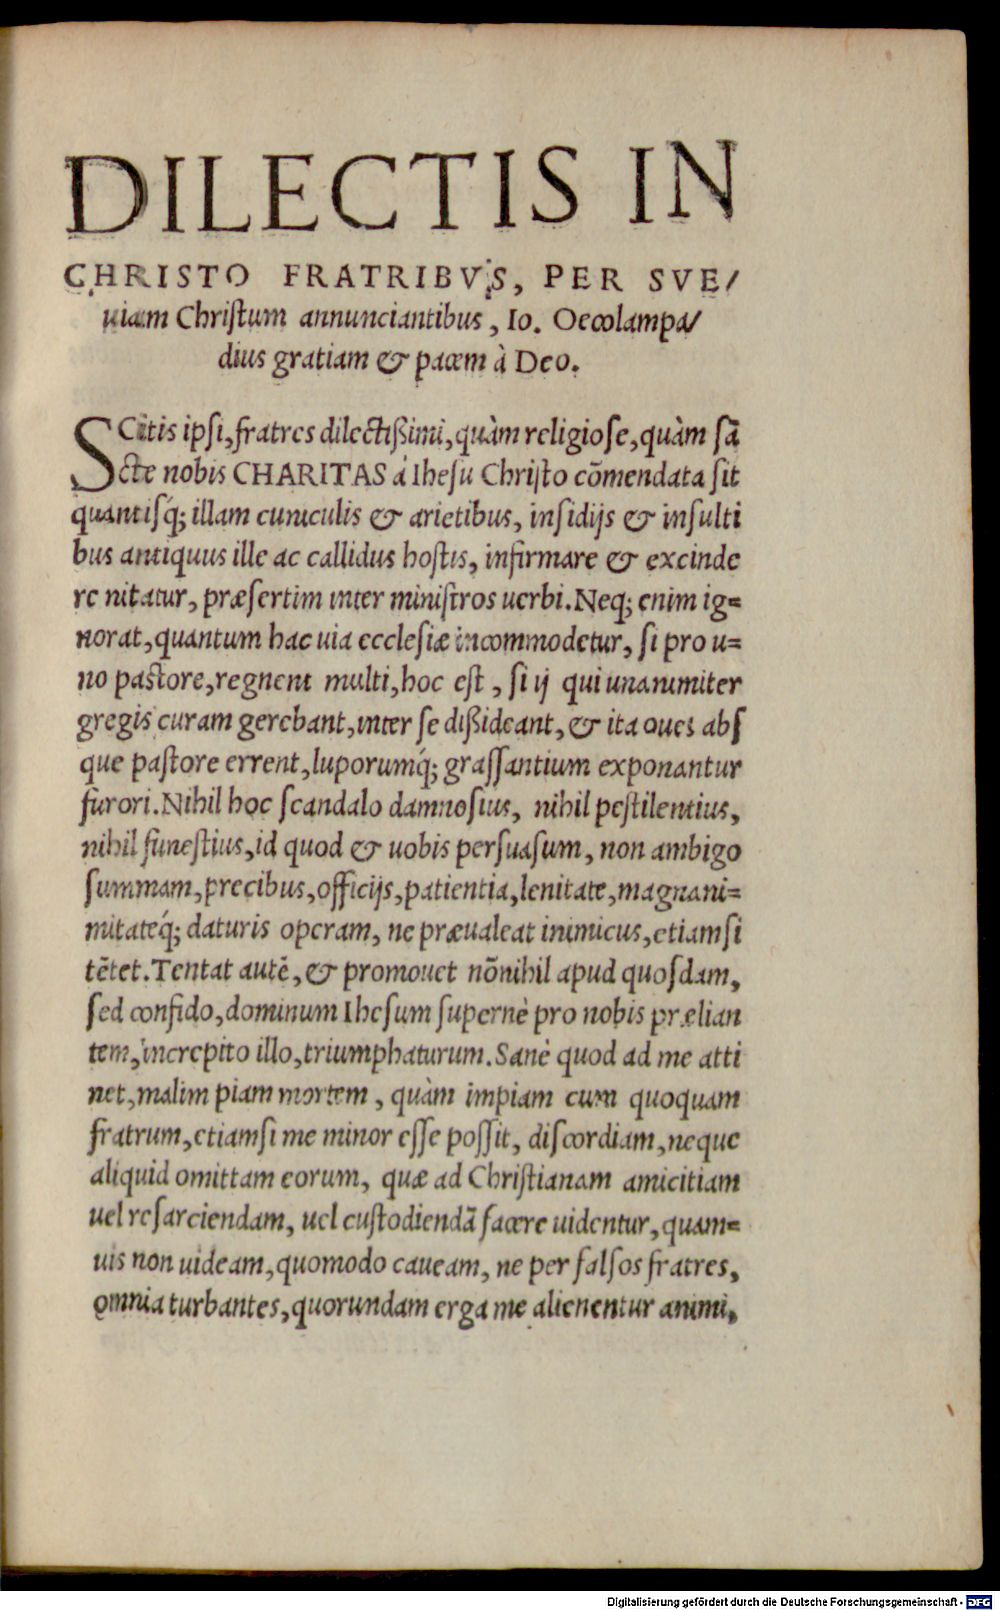 DILECTIS IN
CHRISTO FRATRIBVS, PER SVE/
uiam Chriſtum annunciantibus, Io. Oecolampa/
dius gratiam & pacem à Deo.
SCitis ipſi, fratres dilectißimi, quàm religioſe, quàm ſã
cte nobis CHARITAS á Iheſu Chriſto cõmendata ſit
quantiſq́; illam cuniculis & arietibus, inſidijs & inſulti
bus antiquus ille ac callidus hoſtis, infirmare & excinde
re nitatur, præſertim inter miniſtros uerbi. Neq; enim ig=
norat, quantum hac uia eccleſiæ incommodetur, ſi pro u=
no paſtore, regnent multi, hoc eſt, ſi ij qui unanimiter
gregis curam gerebant, inter ſe dißideant, & ita oues abſ
que paſtore errent, luporumq́; graſſantium exponantur
furori. Nihil hoc ſcandalo damnoſius, nihil peſtilentius,
nihil funeſtius, id quod & uobis perſuaſum, non ambigo
ſummam, precibus, officijs, patientia, lenitate, magnani=
mitateq́; daturis operam, ne præualeat inimicus, etiamſi
tẽtet. Tentat autẽ, & promouet nõnihil apud quoſdam,
ſed confido, dominum Iheſum ſupernè pro nobis prælian
tem, increpito illo, triumphaturum. Sanè quod ad me atti
net, malim piam mortem, quàm impiam cum quoquam
fratrum, etiamſi me minor eſſe poſſit, diſcordiam, neque
aliquid omittam eorum, quæ ad Chriſtianam amicitiam
uel reſarciendam, uel cuſtodiendã facere uidentur, quam=
uis non uideam, quomodo caueam, ne per falſos fratres,
omnia turbantes, quorundam erga me alienentur animi,
Digitalisierung gefördert durch die Deutsche Forschungsgemeinschaft - DFG